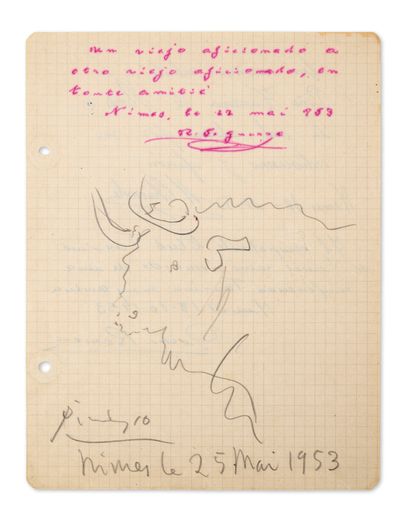 Un viejo aficionado a
otro viejo aficionado, en
toute amitié
Nimes, le 22 mai 953
Nimes le 25 Mai 1953